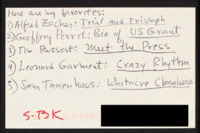 Here are my favorites:
1) Alfred Zacher: Trial and Triumph
2) Geoffrey Perret: Bio of US Grant
3) Tim Russert: Meet the Press
4) Leonard Garment: Crazy Rhythm
5) Sam Tanenhaus: Whittaker Chambers
S-BK